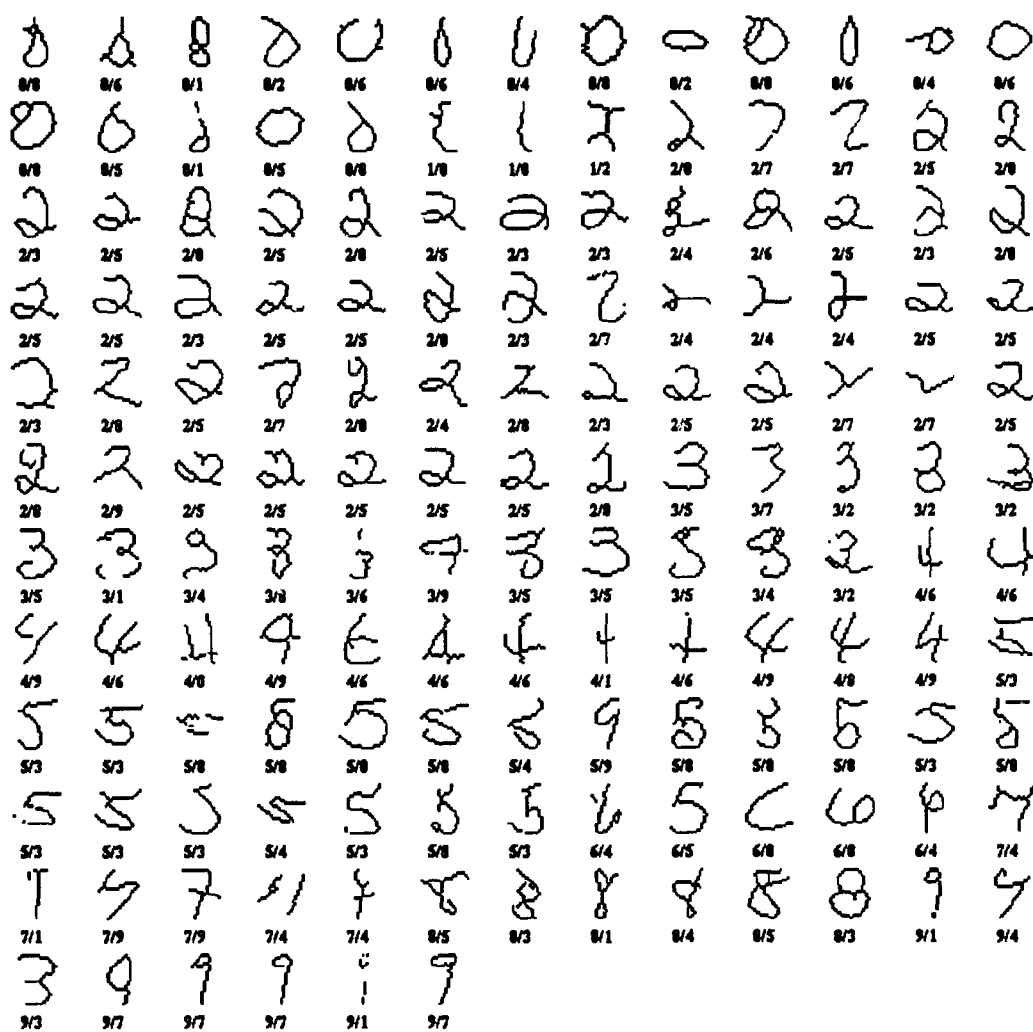 0/8 0/6 0/1 0/2 0/6 0/6 0/4 0/8 0/2 0/8 0/6 0/4 0/6
0/8 0/5 0/1 0/5 0/8 1/8 1/8 1/2 2/8 2/7 2/7 2/5 2/8
2/3 2/5 2/8 2/5 2/8 2/5 2/3 2/3 2/4 2/6 2/5 2/3 2/8
2/5 2/5 2/3 2/5 2/5 2/8 2/3 2/7 2/4 2/4 2/4 2/5 2/5
2/3 2/8 2/5 2/7 2/8 2/4 2/8 2/3 2/5 2/5 2/7 2/7 2/5
2/8 2/9 2/5 2/5 2/5 2/5 2/5 2/8 3/5 3/7 3/2 3/2 3/2
3/5 3/1 3/4 3/8 3/6 3/9 3/5 3/5 3/5 3/4 3/2 4/6 4/6
4/9 4/6 4/0 4/9 4/6 4/6 4/6 4/1 4/6 4/9 4/8 4/9 5/3
5/3 5/3 5/8 5/8 5/8 5/8 5/4 5/9 5/8 5/8 5/8 5/3 5/8
5/3 5/3 5/3 5/4 5/3 5/8 5/3 6/4 6/5 6/8 6/8 6/4 7/4
7/1 7/9 7/9 7/4 7/4 8/5 8/3 8/1 8/4 8/5 8/3 9/1 9/4
9/3 9/7 9/7 9/7 9/1 9/7